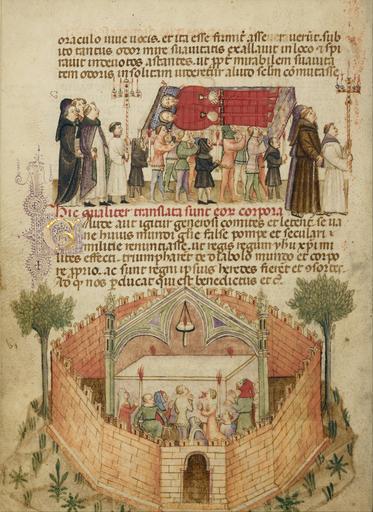 oraculo vive vocis. et ita esse firmit asseruerut. sub
ito tantus odor mire suavitatis exallavit in loco & spi
ravit intevotos astantes. ut ppt mirabilem suavita
tem odoris insolitam
Hic qualiter translata sunt eor corpora
aut igitur generosi comites et
ne huius mundi glie false pompe et seculari
militie renuntiasse. ut regis regum yhu xpi mi
lites effecti. triumpharet de dyabolo mundo et corpo
re prio. ac sunt regni ipsius heredes fieret et
Ad q nos pducat qui est benedictus et c.